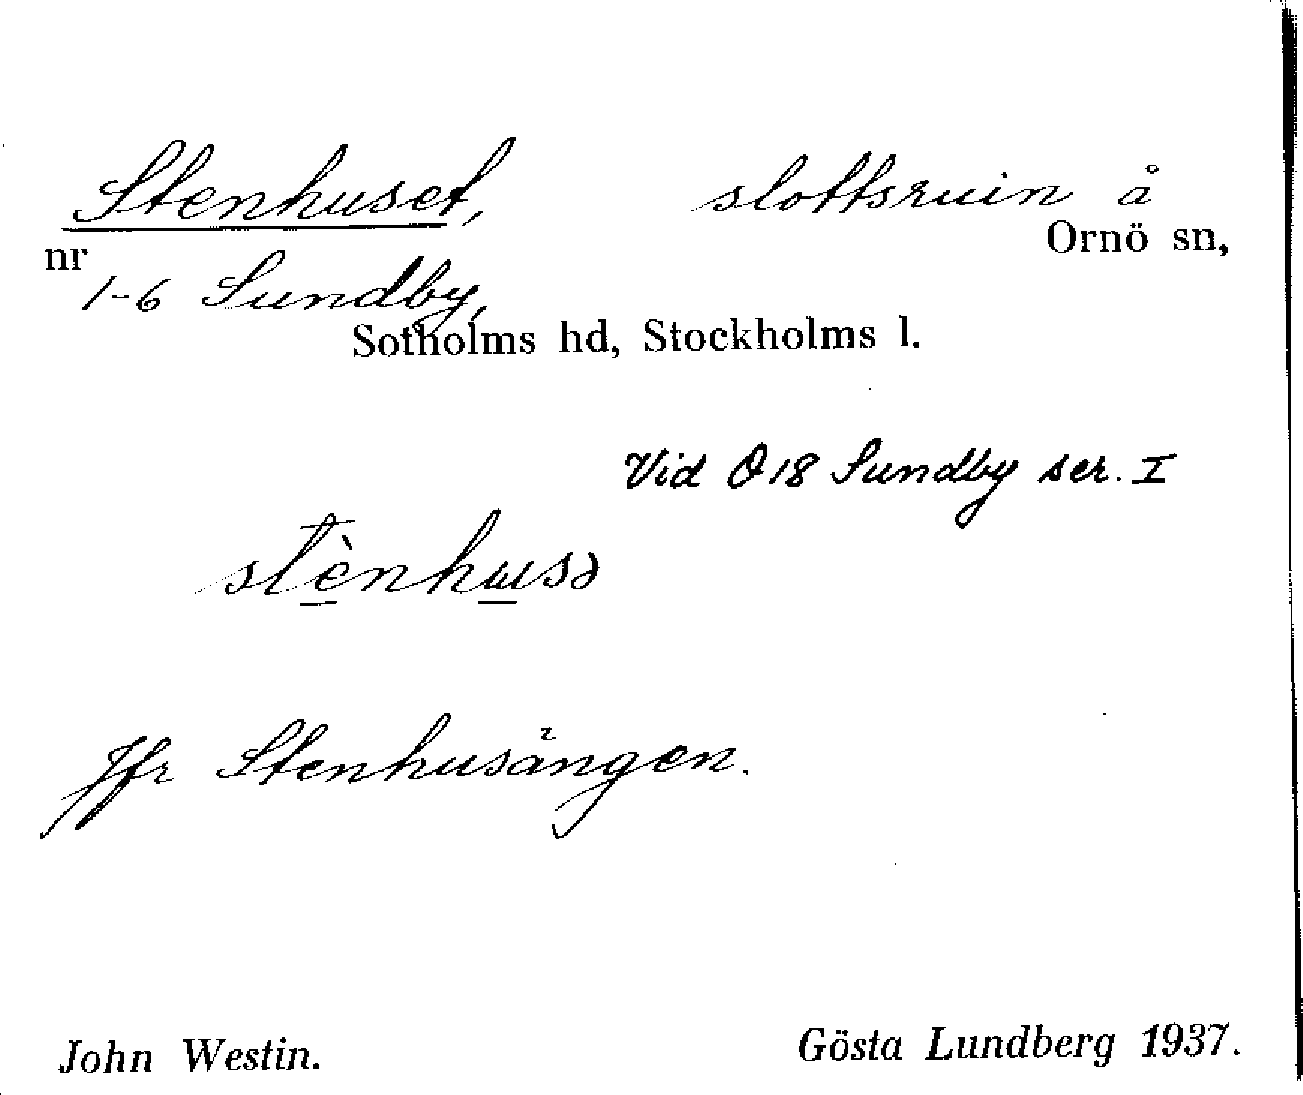 Stenhuset, slottsruin å
nr Ornö sn,
1-6 Sundby,
Sotholms hd, Stockholms l.
Vid Ö18 Sundby ser. I
stè̲nhu̲sə
Jfr Stenhusängen.
John Westin. Gösta Lundberg 1937.